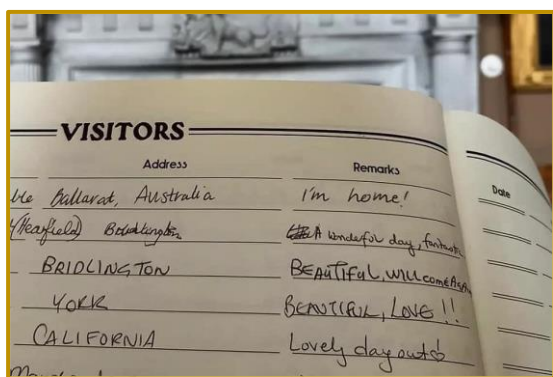 VISITORS
Address Remarks Date
Ballarat, Australia I'm home!
(Hearfield) Bridlington A wonderful day, fantastic
BRIDLINGTON BEAUTIFUL, WILL COME AGAIN
YORK BEAUTIFUL, LOVE !!
CALIFORNIA Lovely day out